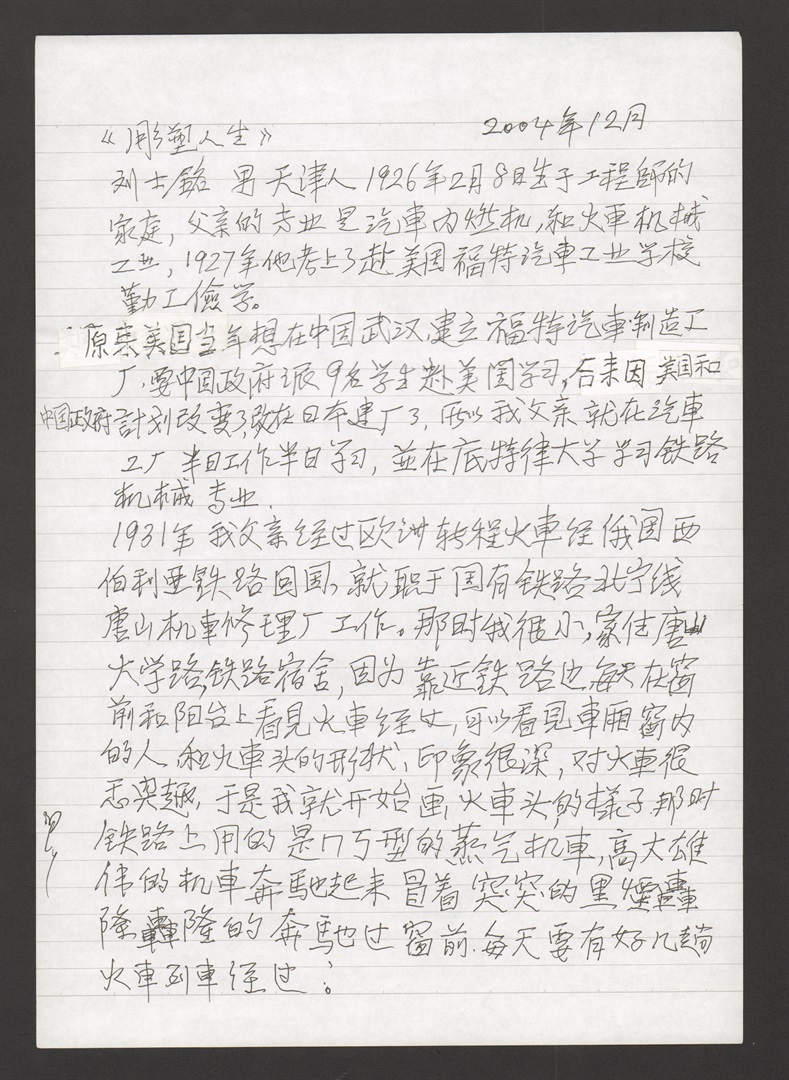 2004年12月
《彫塑人生》
刘士銘 男 天津人 1926年2月8日生于工程師的
家庭，父亲的专业是汽車内燃机，和火車机械
工业，1927年他考上了赴美国福特汽車工业学校
勤工儉学。
原来美国当年想在中国武汉，建立福特汽車制造工
厂，要中国政府派9名学生赴美国学习，后来因美国和
中国政府計划改变了，改在日本建厂了，所以我父亲就在汽車
工厂半日工作半日学习，並在底特律大学学习铁路
机械专业.
1931年我父亲经过欧洲转程火車经俄国西
伯利亚铁路回国，就职于国有铁路北宁线
唐山机車修理厂工作。那时我很小，家住唐山
大学路，铁路宿舍，因为靠近铁路边每天在窗
前和阳台上看見火車经过，可以看見車厢窗内
的人和火車头的形状，印象很深，对火車很
感兴趣，于是我就开始画，火車头的樣子那时
铁路上用的是 型的蒸气机車，高大雄
伟的机車奔馳起来冒着突突的黑煙轟
隆轟隆的奔馳过窗前.每天要有好几趟
火車列車经过：